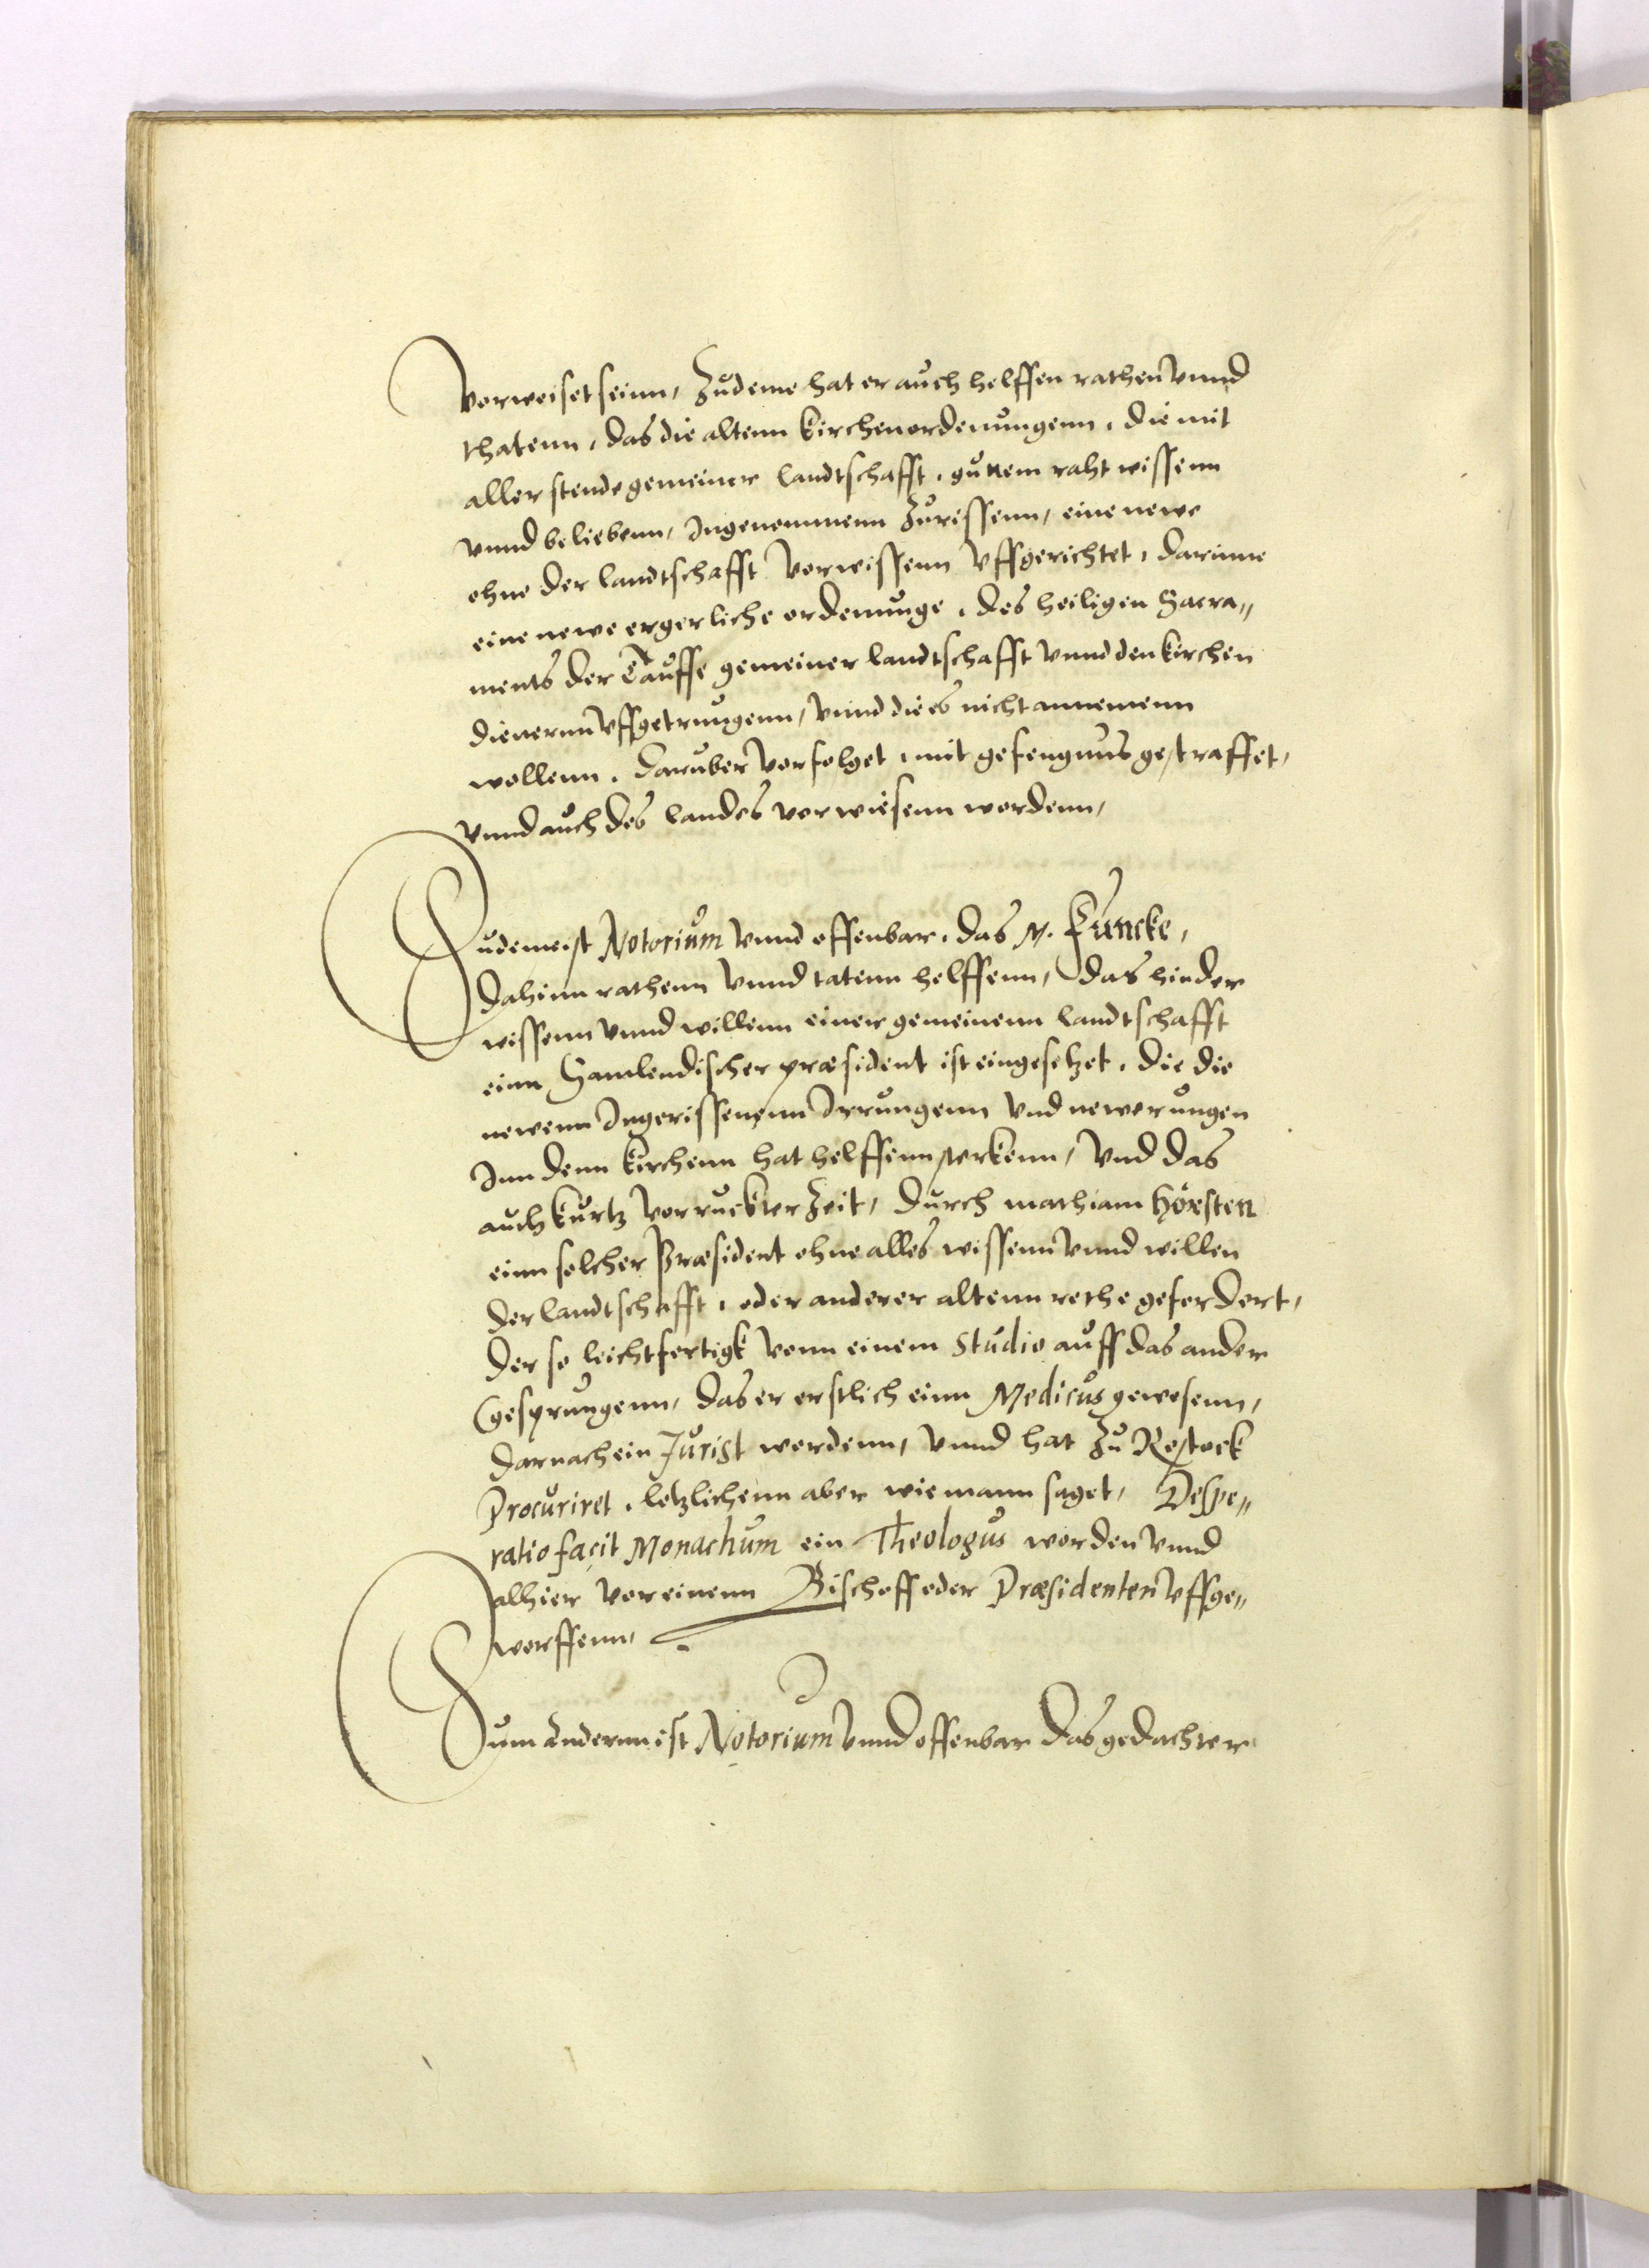 Vorweiset seinn, Zudeme hat er auch helffen rathen vnnd
thatenn, das die altenn Kirchenordenungenn, die mit
aller stende gemeiner landtschafft, gutem raht wissenn
vnnd beliebenn, Ingenommenn Zurissenn, eine newe
ohne der landtschafft Vorwissenn Vffgerichtet, darinne
eine newe ergerliche ordenunge, des heiligen Sacra„
ments der Tauffe gemeiner landtschafft vnnd den kirchen
dienernn Vffgetrungenn, vnnd die es nicht annemenn
wollenn, daruber vorfolget, mit gefengnus gestraffet,
vnnd auch des landes vorwiesenn wordenn,
Zudeme ist Notorium vnnd offenbar, das M. Funcke,
dahinn rathenn vnnd tatenn helffenn, das hinder
wissenn vnnd willenn einer gemeinenn landtschafft
einn Samlendischer præsident ist eingesetzet, die die
newenn Ingerissenenn Irrungenn vnd newerungen
Inn denn kirchenn hat helffenn sterkenn, Vnd das
auch kurtz vorruckter Zeit, durch mathiam Hörsten
einn solcher Præsident ohne alles wissenn vnnd willen
der landtschafft, oder anderer altenn rethe gefordert,
der so leichtfertigk vonn einem Studio auff das ander
gesprungenn, das er erstlich einn Medicus gewesenn,
darnach ein Jurist wordenn, vnnd hat Zu Rostock
Procuriret, letzlichenn aber wie mann saget, Despe„
ratio facit Monachum ein Theologus worden vnnd
alhier vor einenn Bischoff oder Præsidenten Vffge„
worffenn,
Zum Andernn ist Notorium vnnd offenbar das gedachter